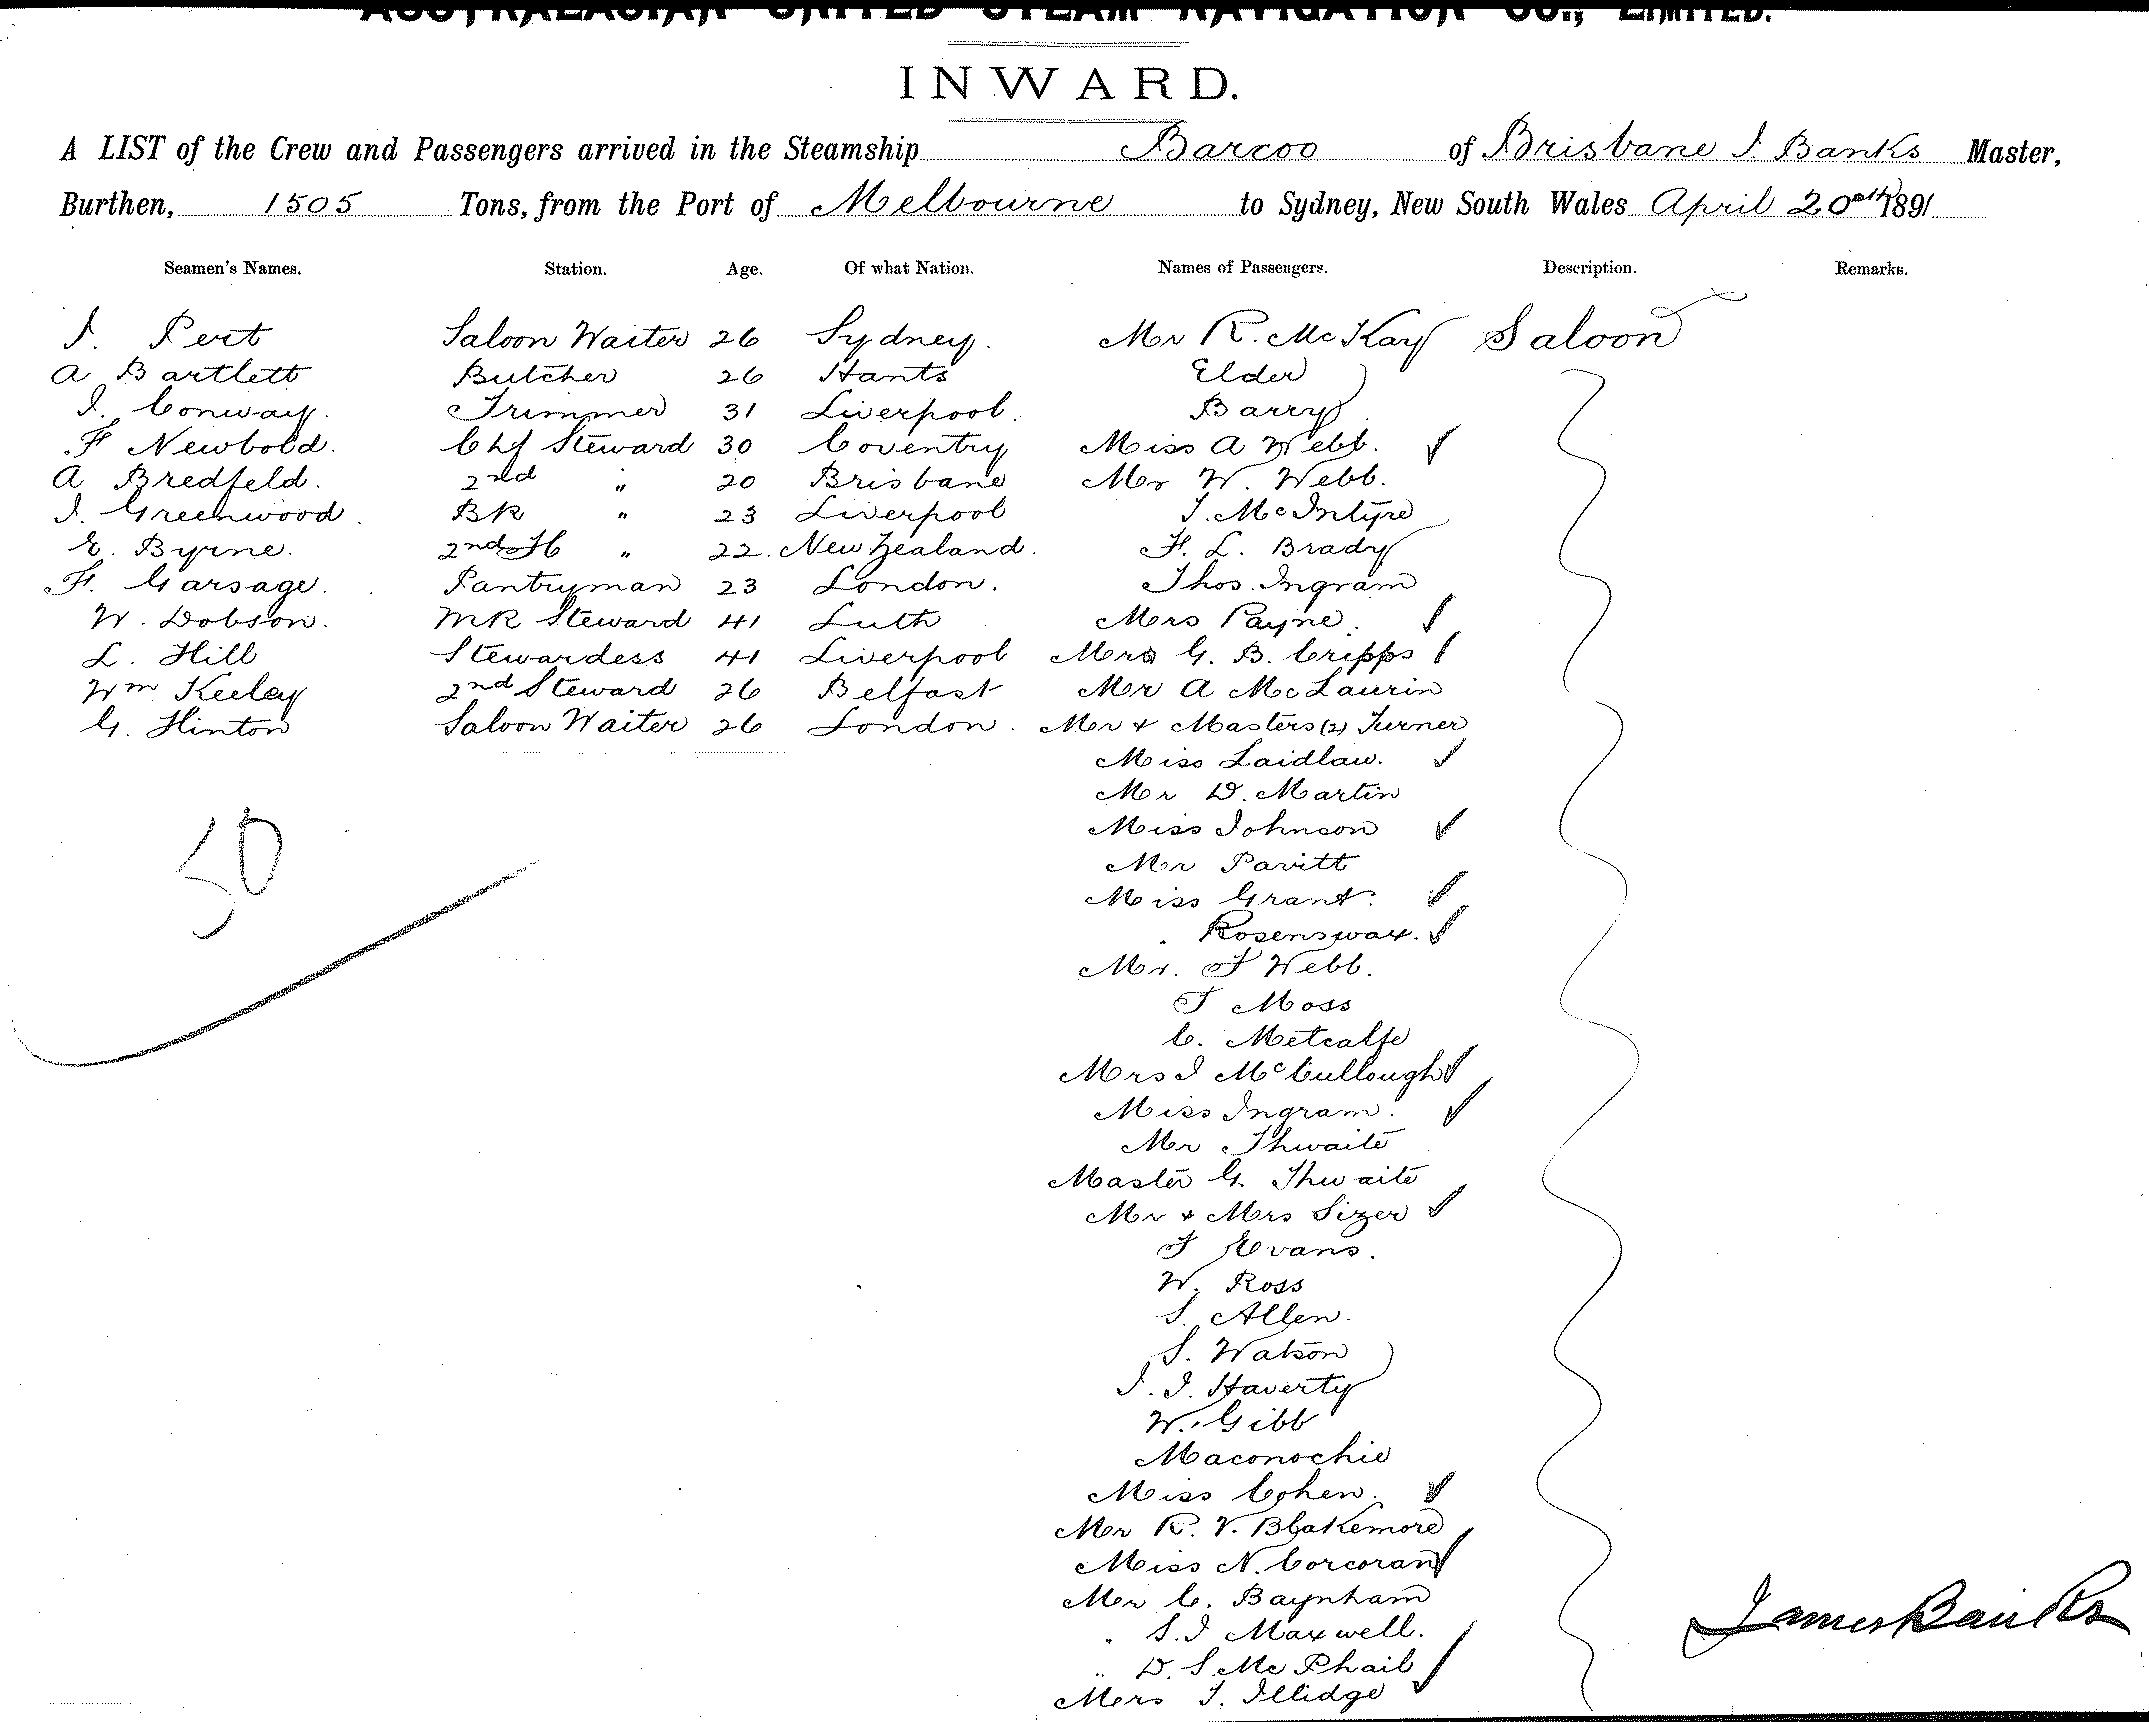 AUSTRALASIAN UNITED STEAM NAVIGATION CO., LIMITED.
INWARD.
A LIST of the Crew and Passengers arrived in the Steamship Barcoo of Brisbane J. Banks Master,
Burthen, 1505 Tons, from the Port of Melbourne to Sydney, New South Wales April 20th 1891
Seamen's Names. Station. Age. Of what Nation. Names of Passengers. Description. Remarks.
J. Pert Saloon Waiter 26 Sydney. Mr R. McKay Saloon
A Bartlett Butcher 26 Hants Elder
J. Conway. Trimmer 31 Liverpool. Barry
F Newbold. Chf Steward 30 Coventry Miss A Webb.
A Bredfeld. 2nd " 20 Brisbane Mr W. Webb.
J. Greenwood. BK " 23 Liverpool J. McIntyre
E. Byrne. 2nd " 22. New Zealand. F. L. Brady
F. Garsage. Pantryman 23 London. Thos. Ingram
W. Dobson. MR Steward 41 Luth Mrs Payne.
L. Hill Stewardess 41 Liverpool Mrs G. B. Cripps
Wm Keeley 2nd Steward 26 Belfast Mr A McLaurin
G. Hinton Saloon Waiter 26 London. Mr + Masters (2) Turner
Miss Laidlaw.
Mr D. Martin
50
Miss Johnson
Mr Pavitt
Miss Grant.
" Rosenswax.
Mr. F Webb.
T Moss
C. Metcalfe
Mrs J McCullough
Miss Ingram.
Mr Thwaite
Master G. Thwaite
Mr + Mrs Sizer
F Evans.
W. Ross
S. Allen.
S. Watson
J. J. Haverty
W. Gibb
Maconochie
Miss Cohen.
Mr R. V. Blakemore
Miss N. Corcoran
Mr C. Baynham
" S. J Maxwell.
" D. S. McPhail
Mrs J. Illidge
James Banks